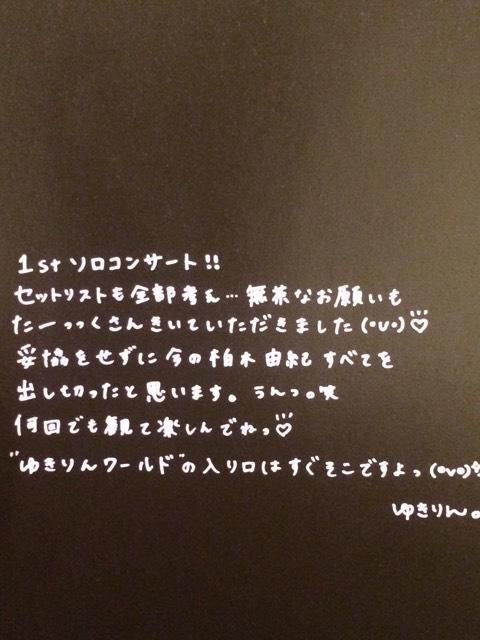 1st ソロコンサート!!
セットリストも全部考え…無茶なお願いも
たーっっくさんきいていただきました(•v•)♡
妥協をせずに今の柏木由紀すべてを
出し切ったと思います。うんっ。笑
何回でも観て楽しんでねっ♡
"ゆきりんワールド"の入り口はすぐそこですよっ(•v•)
ゆきりん。